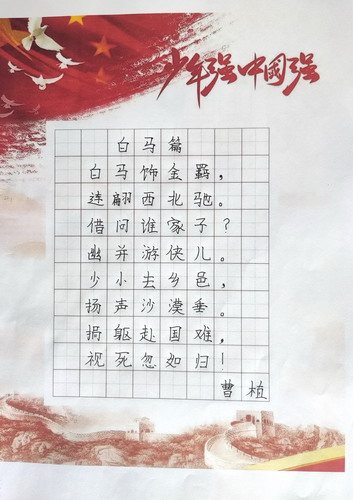 少年强中國强
白马篇
白马饰金羁，
连翩西北驰。
借问谁家子？
幽并游侠儿。
少小去乡邑，
扬声沙漠垂。
捐躯赴国难，
视死忽如归！
曹植